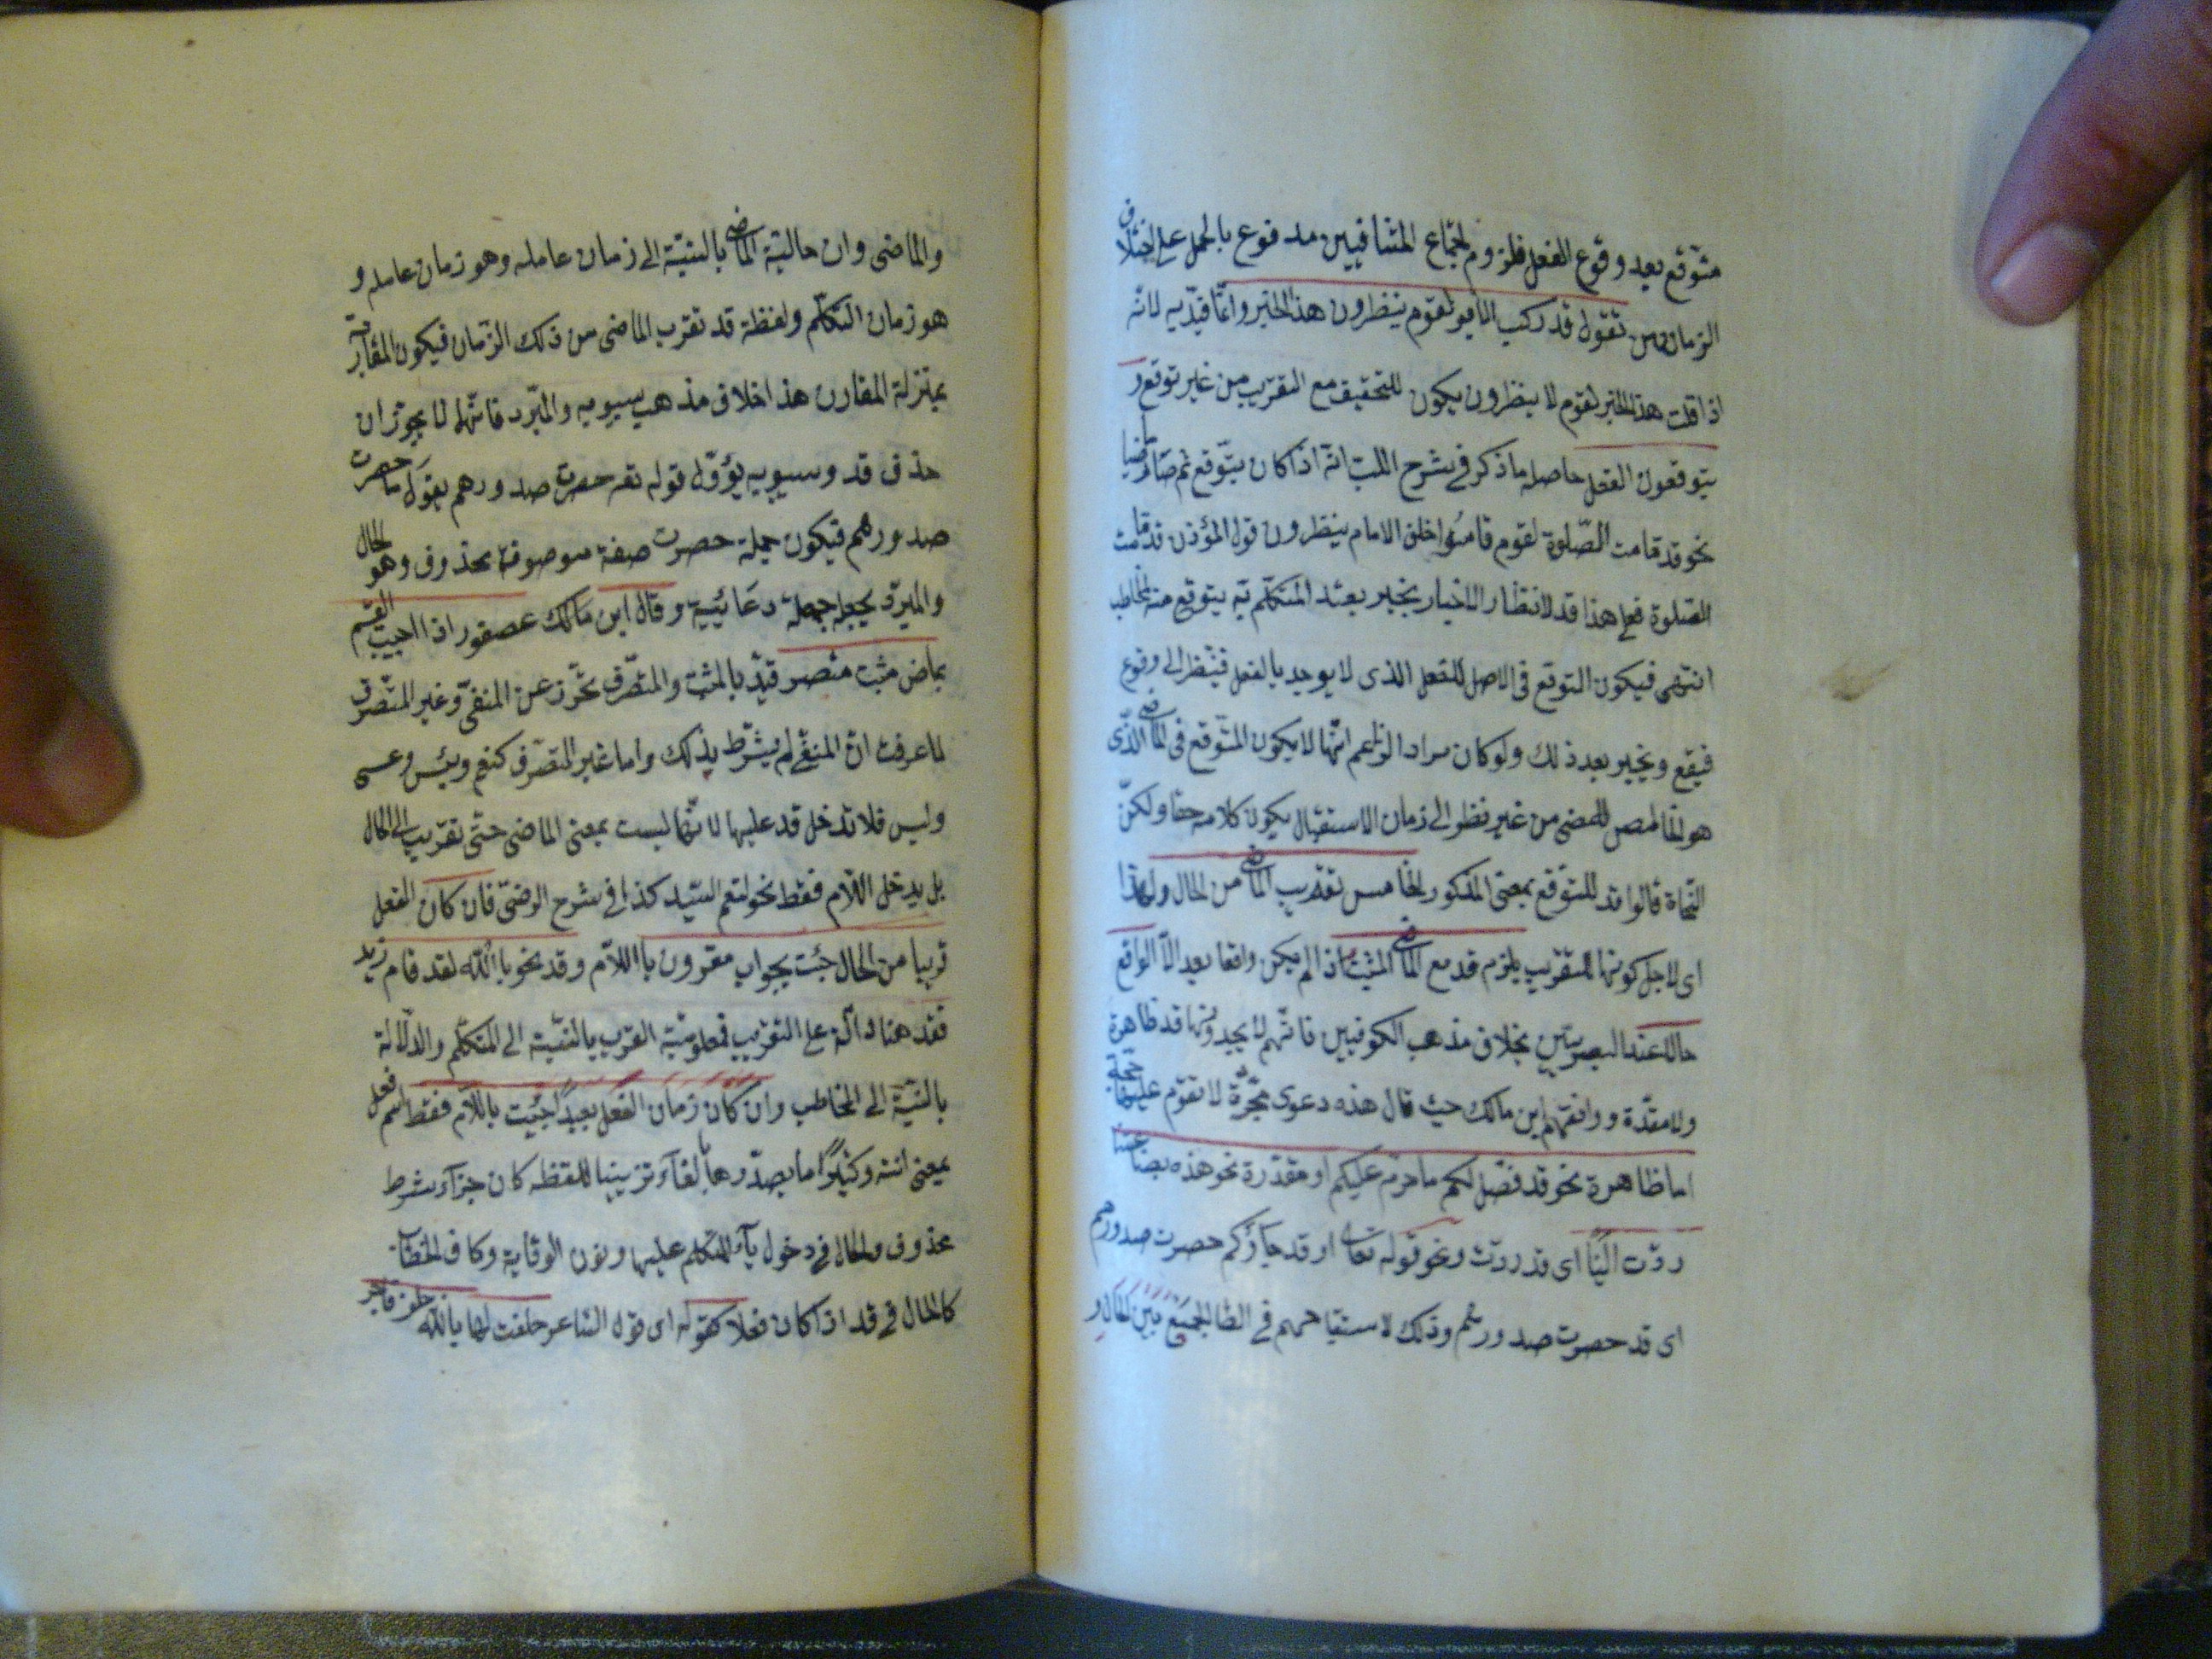 متوقع بعد وقوع الفعل فلزوم اجتماع المتنافيين مدفوع بالحمل على اختلاف
الزمان ومن تقول قد ركب الأمير لقوم ينظرون هذا الخبر وانما قيد به لانه
اذا قلت هذا الخبر لقوم لا ينظرون يكون للتحقيق مع التقريب من غير توقع و
يتوقعون الفعل حاصله ما ذكر في شرح اللب انه اذا كان يتوقع ثم صار ماضيا
نحو قد قامت الصلوة لقوم قاموا خلف الامام ينظرون قول المؤذن قد قامت
الصلوة فعلى هذا قد لانتظار الاخبار بخبر يعتد المتكلم به يتوقع منه المخاطب
انتهى فيكون التوقع فى الاصل للفعل الذى لا يوجد بالفعل فينظر الى وقوع
فيقع ويخبر بعد ذلك ولو كان مراد الزاعم انها لا يكون المتوقع فى الماضى الذى
هو الخالص للمضى من غير نظر الى زمان الاستقبال يكون كلامه حقا ولكن
النحاة قالوا قد للتوقع بمعنى المذكور الخامس تقريب الماضى من الحال ولهذا
اى لاجل كونها للتقريب يلزم قد مع الماضى المثبت اذا لم يكن واقعا بعد الا الواقع
حالا عند البصريين بخلاف مذهب الكوفيين فانهم لا يجدونها قد ظاهرة
ولا مقدّة ووافقهم ابن مالك حيث قال هذه دعوى مجرّة لا تقوم عليها حجة
اما ظاهرة نحو قد فصّل لكم ما حرّم عليكم او مقدّرة نحو هذه بضاعتنا
ردّت الينا اى قد ردّت ونحو قوله تعالى او قد جاؤكم حصرت صدورهم
اى قد حصرت صدورهم وذلك لاستقباحهم في الظا الجمع بين الحال و
والماضى وان حالية الماضى بالنسبة الى زمان عامله وهو زمان عامله و
هو زمان التكلم ولفظة قد تقرب الماضى من ذلك الزمان فيكون المقاربة
بمنزلة المقارن هذا خلاف مذهب سيبويه والمبرد فانهما لا يجوزان
حذف قد وسيبويه يؤوّل قوله تعه حصرت صدورهم بقوما حصرت
صدورهم فيكون جملة حصرت صفة موصوفة محذوف وهو الحال
والمبرد يجعله جملة دعائية وقال ابن مالك عصفور اذا اجيب القسم
بماض مثبت متصر قيد بالمثبت والمتصرف تحرز عن المنفى وغير المتصرف
لما عرفت ان المنفى لم يشترط بذلك واما غير المتصرف كنعم وبئس وعسى
وليس فلا تدخل قد عليها لانها ليست بمعنى الماضى حتى تقريب الى الحال
بل يدخل اللام فقط نحو لنعم السيد كذا في شرح الرضى فان كان الفعل
قريبا من الحال جئت بجواب مقرون باللام وقد نحو بالله لقد قام زيد
فقد هنا دالة على التقريب فمعلومية القرب بالنسبة الى المتكلم والدلالة
بالنسبة الى المخاطب وان كان زمان الفعل بعيدا جئت باللام فقط اسم فعل
بمعنى انته وكثيرا ما يصدّرها بالفاء تزيينا للفظه كان جزاء شرط
محذوف والحال في دخول ياء المتكلم عليها ونون الوقاية وكاف الخطاب
كالحال في قد اذا كان فعلا كقوله اى قول الشاعر حلفت لها بالله حلف فاجر